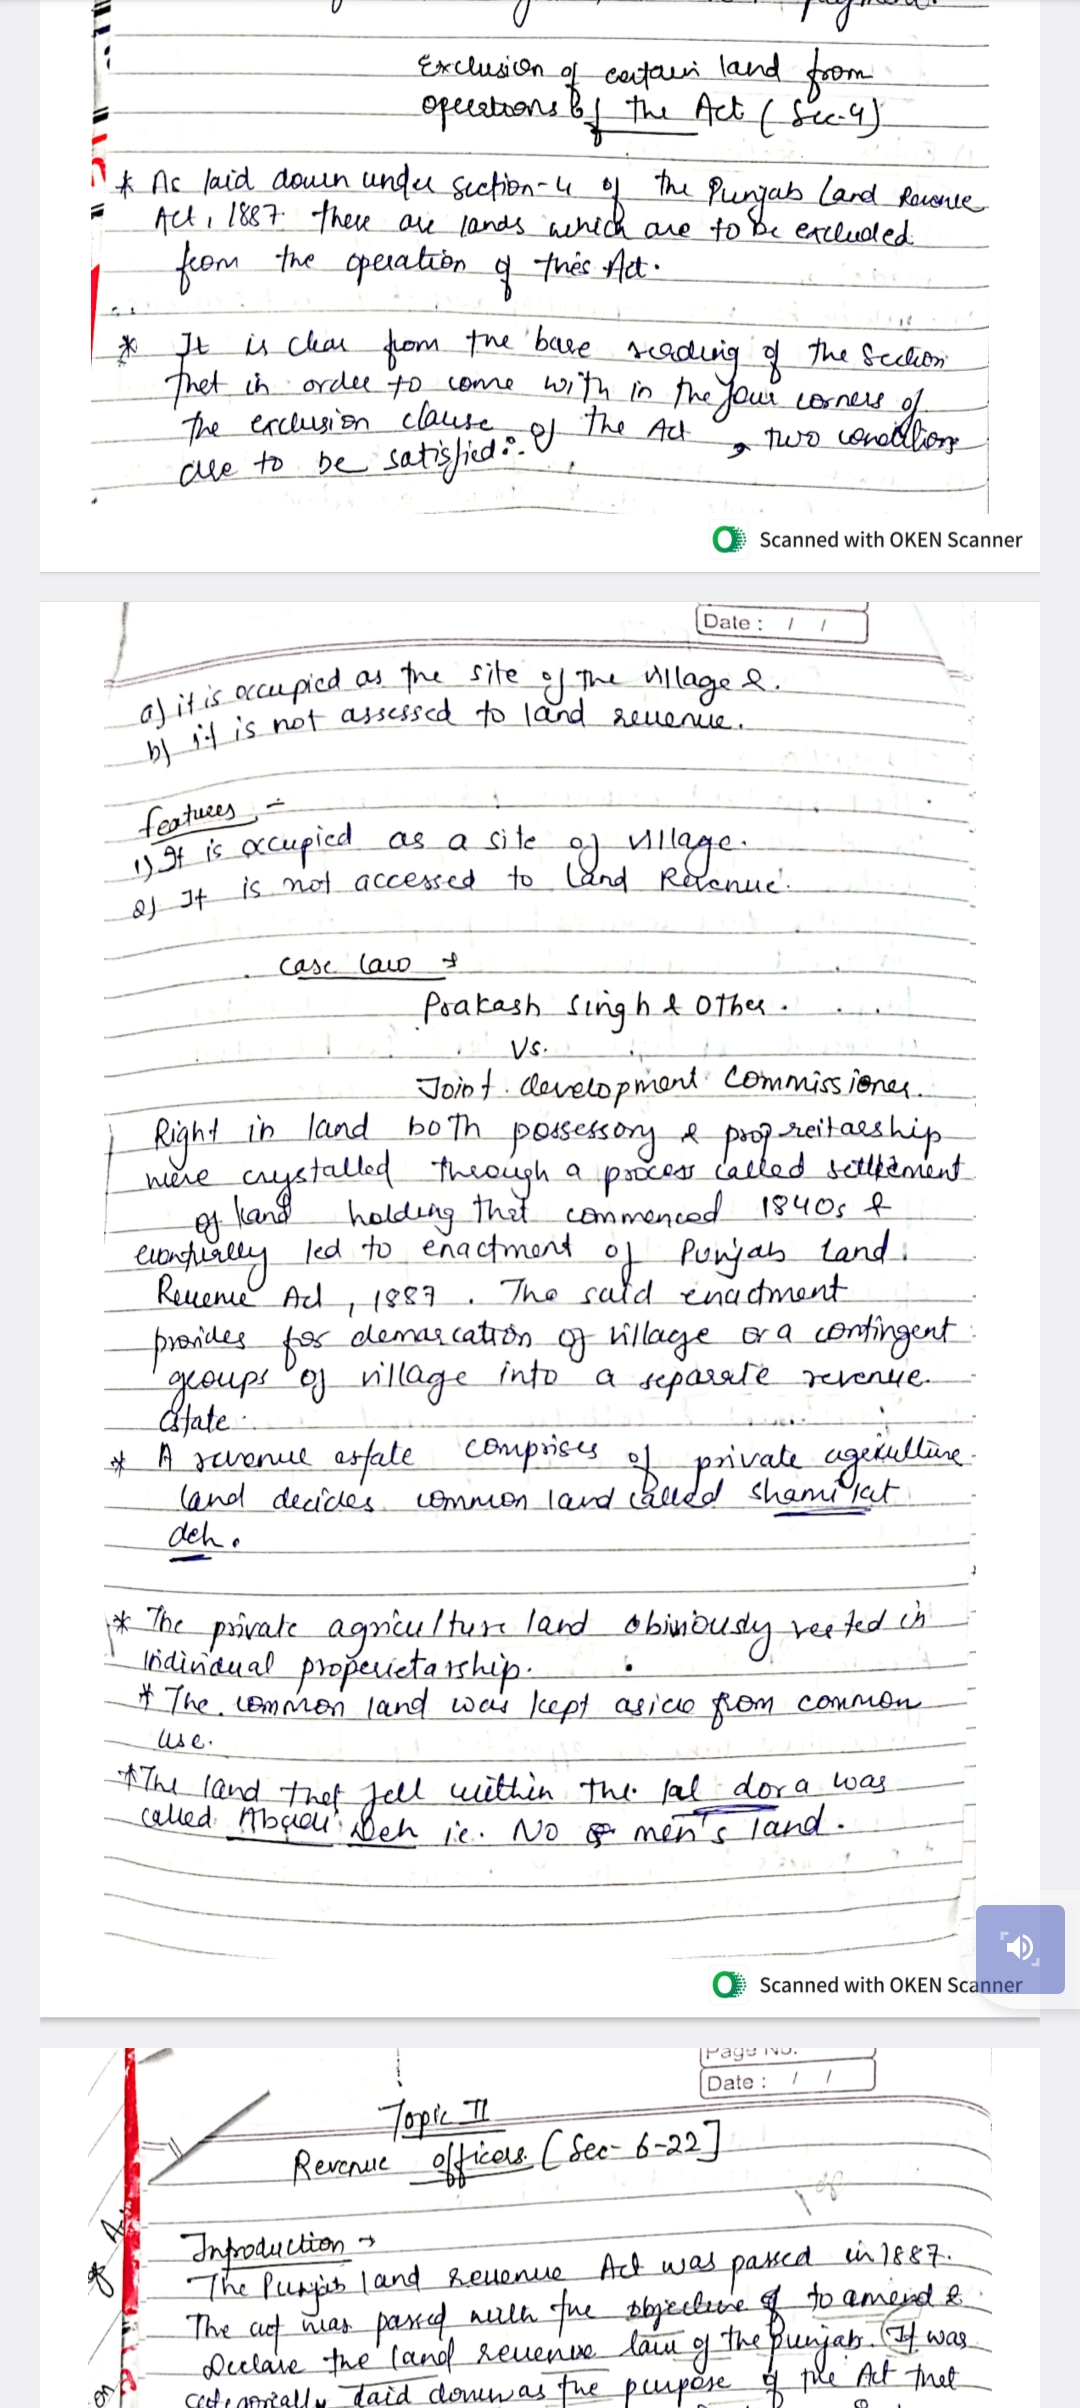 Exclusion of certain land from
operations of the Act ( Sec-4)
* As laid down under section-4 of the Punjab Land Revenue
Act, 1887. there are lands which are to be excluded
from the operation of this Act.
* It is clear from the bare reading of the Section
that in order to come with in the four corners of
the exclusion clause of the Act, two conditions
are to be satisfied:-
Scanned with OKEN Scanner
Date : / /
a) it is occupied as the site of the village &.
b) it is not assessed to land revenue.
features :-
1) It is occupied as a site of village.
2) It is not accessed to Land Revenue.
case law →
Prakash Singh & Other.
Vs.
Joint development Commissioner.
Right in land both possessory & propreitaeship
were crystalled through a process called settlement
of land holding that commenced 1840s &
eventually led to enactment of Punjab Land
Revenue Act, 1887. The said enactment
provides for demarcation of village or a contingent
groups of village into a separate revenue
estate.
* A revenue estate comprises of private agriculture
land decides common land called shamilat
deh.
* The private agriculture land obiviously vested in
individual properietarship.
* The common land was kept aside from common
use.
* The land that fell within the lal dora was
called Abadi Deh ie. No men's land.
Scanned with OKEN Scanner
Page No.
Date : / /
Topic II
Revenue officers. [Sec- 6-22]
Introduction →
The Punjab land revenue Act was passed in 1887.
The act was passed with the objective of to amend &
Declare the land revenue law of the Punjab. It was
categorically laid down as the purpose of the Act that